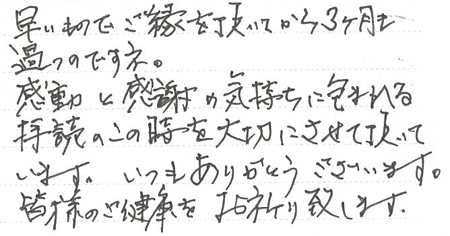 早いものでご縁を頂いてから3ヶ月も
過つのですネ。
感動と感謝の気持ちに包まれる
拝読のこの時を大切にさせて頂いて
います。いつもありがとうございます。
皆様のご健康をお祈り致します。